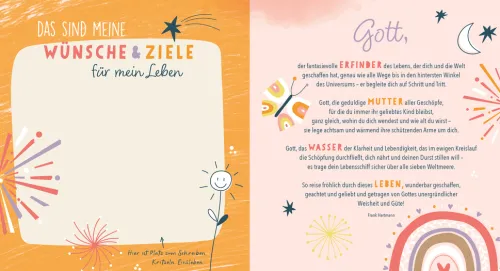 DAS SIND MEINE
WÜNSCHE & ZIELE
für mein Leben
Hier ist Platz zum Schreiben,
Kritzeln, Einkleben.
Gott,
der fantasievolle ERFINDER des Lebens, der dich und die Welt
geschaffen hat, genau wie alle Wege bis in den hintersten Winkel
des Universums – er begleite dich auf Schritt und Tritt.
Gott, die geduldige MUTTER aller Geschöpfe,
für die du immer ihr geliebtes Kind bleibst,
ganz gleich, wohin du dich wendest und wie alt du wirst –
sie lege achtsam und wärmend ihre schützenden Arme um dich.
Gott, das WASSER der Klarheit und Lebendigkeit, das im ewigen Kreislauf
die Schöpfung durchfließt, dich nährt und deinen Durst stillen will –
es trage dein Lebensschiff sicher über alle sieben Weltmeere.
So reise fröhlich durch dieses LEBEN, wunderbar geschaffen,
geachtet und geliebt und getragen von Gottes unergründlicher
Weisheit und Güte!
Frank Hartmann